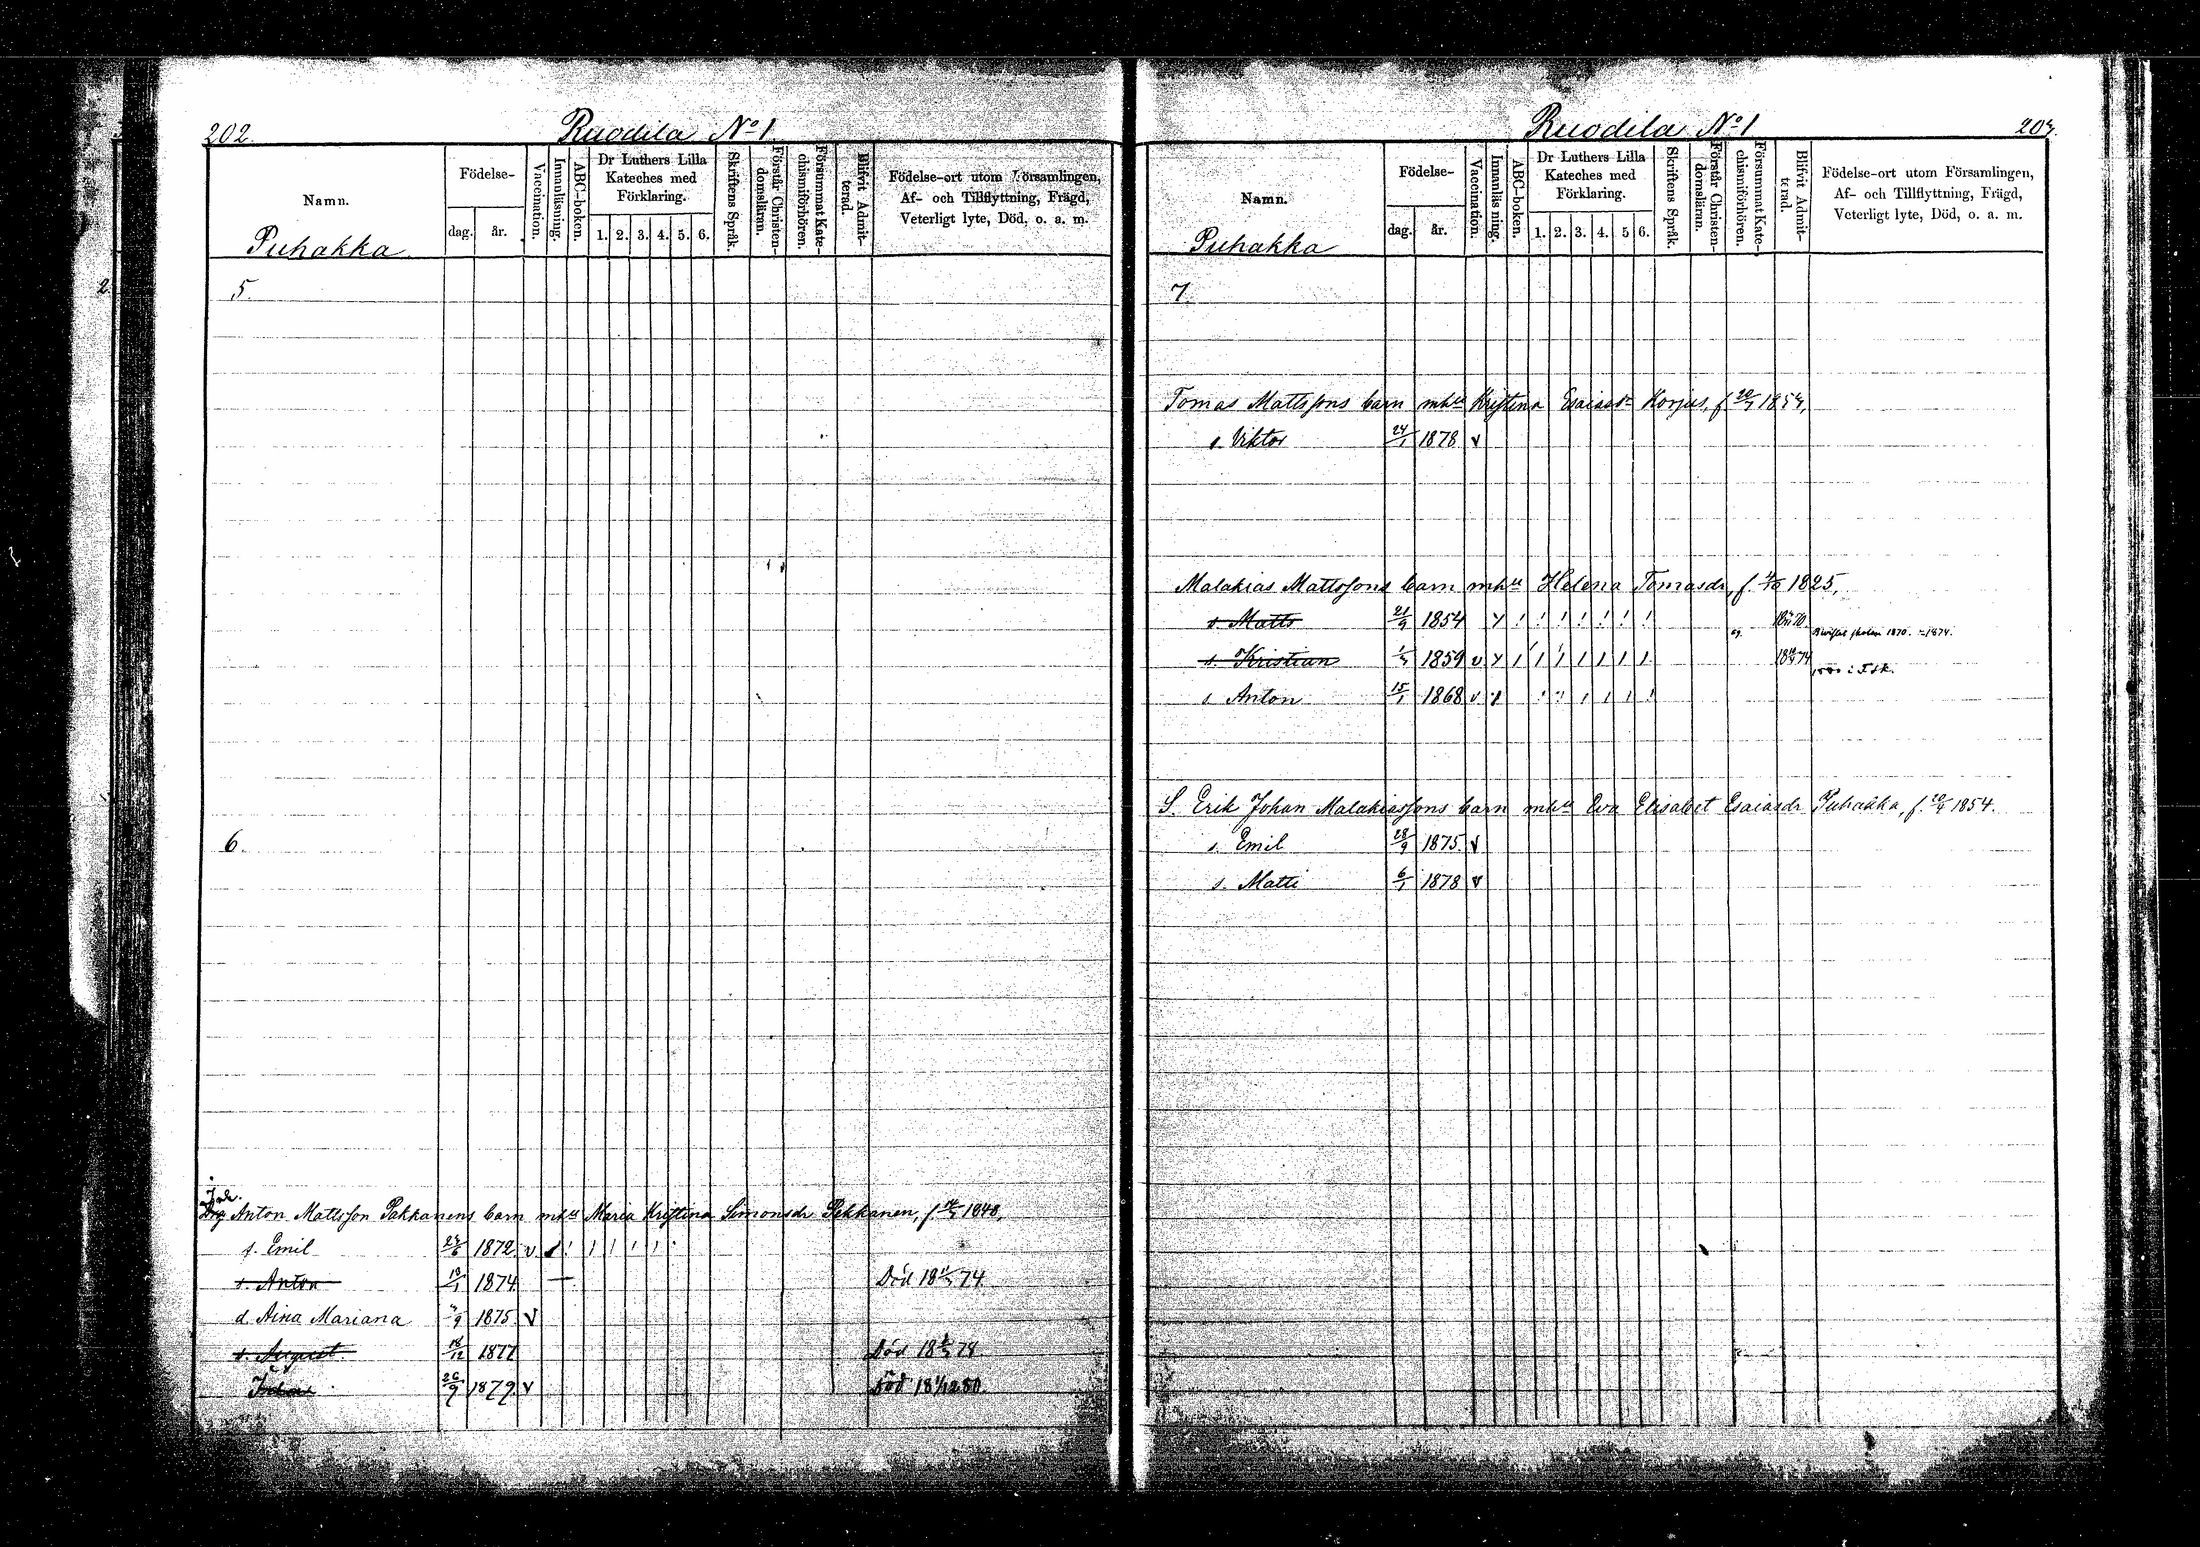 202.
Ruodila No 1
Namn.
Födelse-
dag. år.
Vaccination.
Innanläsning.
ABC-boken.
Dr Luthers Lilla
Kateches med
Förklaring.
1. 2. 3. 4. 5. 6.
Skriftens Språk.
Förstår Christen-
domsläran.
Försummat Kate-
chismiförhören.
Blifvit Admit-
terad.
Födelse-ort utom Församlingen,
Af- och Tillflyttning, Frägd,
Veterligt lyte, Död, o. a. m.
Puhakka
5.
6.
Anton Mattsson Pakkanens barn mhu Maria Kristina Simonsdr Pekkanen, f. 1848,
s. Emil 1872 v
s. Anton 18/1 1874 Död 74
d Aina Mariana 1875 v
s. August 18/12 1877 Död 78
26/9 1879 v Död 80.
Ruodila No 1
203.
Namn.
Födelse-
dag. år.
Vaccination.
Innanläsning.
ABC-boken.
Dr Luthers Lilla
Kateches med
Förklaring.
1. 2. 3. 4. 5 6.
Skriftens Språk.
Förstår Christen-
domsläran.
Försummat Kate-
chismiförhören.
Blifvit Admit-
terad.
Födelse-ort utom Församlingen,
Af- och Tillflyttning, Frägd,
Veterligt lyte, Död, o. a. m.
Puhakka
7.
Tomas Mattssons barn mhu Kristina Esaiasdr Korjus, f.
s. Viktor 24/1 1878 v
Malakias Mattssons barn mhu Helena Tomasdr, f. 1825,
s. Matts 21/9 1854
s. Kristian 1859 v
s Anton 15/1 1868 v
S. Erik Johan Malakiassons barn mhu Eva Elisabet Esaiasdr Puhakka, f. 1854.
s. Emil 28/9 1875 v
s. Matti 6/1 1878 v